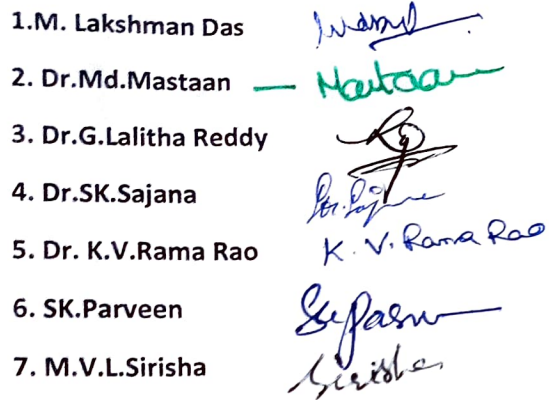 1.M. Lakshman Das
2. Dr.Md.Mastaan — Mastaan
3. Dr.G.Lalitha Reddy
4. Dr.SK.Sajana SK.Sajana
5. Dr. K.V.Rama Rao K. V. Rama Rao
6. SK.Parveen
7. M.V.L.Sirisha Sirisha